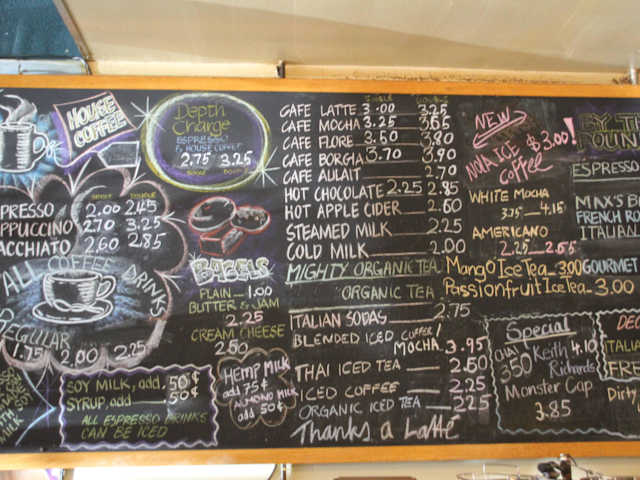 HOUSE
COFFEE
SHORT DOUBLE
PRESSO 2.00 2.45
PPUCCINO 2.70 3.25
ACCHIATO 2.60 2.85
ALL COFFEE DRINKS
REGULAR
1.75 2.00 2.25
SOY MILK, add .50¢
SYRUP, add .50¢
ALL ESPRESSO DRINKS
CAN BE ICED
Depth
Charge
ESPRESSO
& HOUSE COFFEE
2.75 3.25
BAGELS
PLAIN 1.00
BUTTER & JAM
2.25
CREAM CHEESE
2.50
HEMP MILK
add 75¢
ALMOND MILK
add 50¢
SINGLE DOUBLE
CAFE LATTE 3.00 3.25
CAFE MOCHA 3.25 3.65
CAFE FLORE 3.50 3.80
CAFE BORGHA 3.70 3.90
CAFE AULAIT 2.70
HOT CHOCOLATE 2.25 2.85
HOT APPLE CIDER 2.60
STEAMED MILK 2.25
COLD MILK 2.00
MIGHTY ORGANIC TEA
ORGANIC TEA
2.75
ITALIAN SODAS
BLENDED ICED COFFEE /
MOCHA 3.95
THAI ICED TEA 2.50
ICED COFFEE 2.25
ORGANIC ICED TEA 2.25
Thanks a Latté
NEW
$3.00!
ICE
Coffee
WHITE MOCHA
3.75 - 4.15
AMERICANO
2.25 - 2.55
Mango Ice Tea 3.00
Passionfruit Ice Tea 3.00
Special
CHAI
3.50
Keith 4.10
Richards
Monster Cap
3.85
BY TH
POUN
ESPRESSO
MAX'S B
FRENCH RO
ITALIAN
GOURMET
DEC
ITALIA
FRE
Dirty